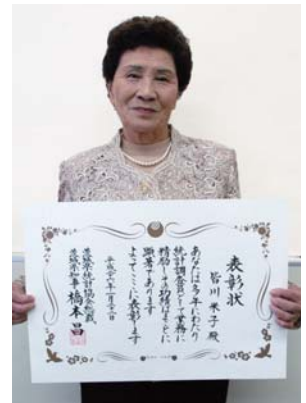 表彰状
皆川 米子 殿
あなたは多年にわたり
統計調査員として業務に
精励しその功績はまことに
顕著であります
よってここに表彰します
平成二十八年十一月二十二日
茨城県統計協会総裁
茨城県知事 橋本 昌